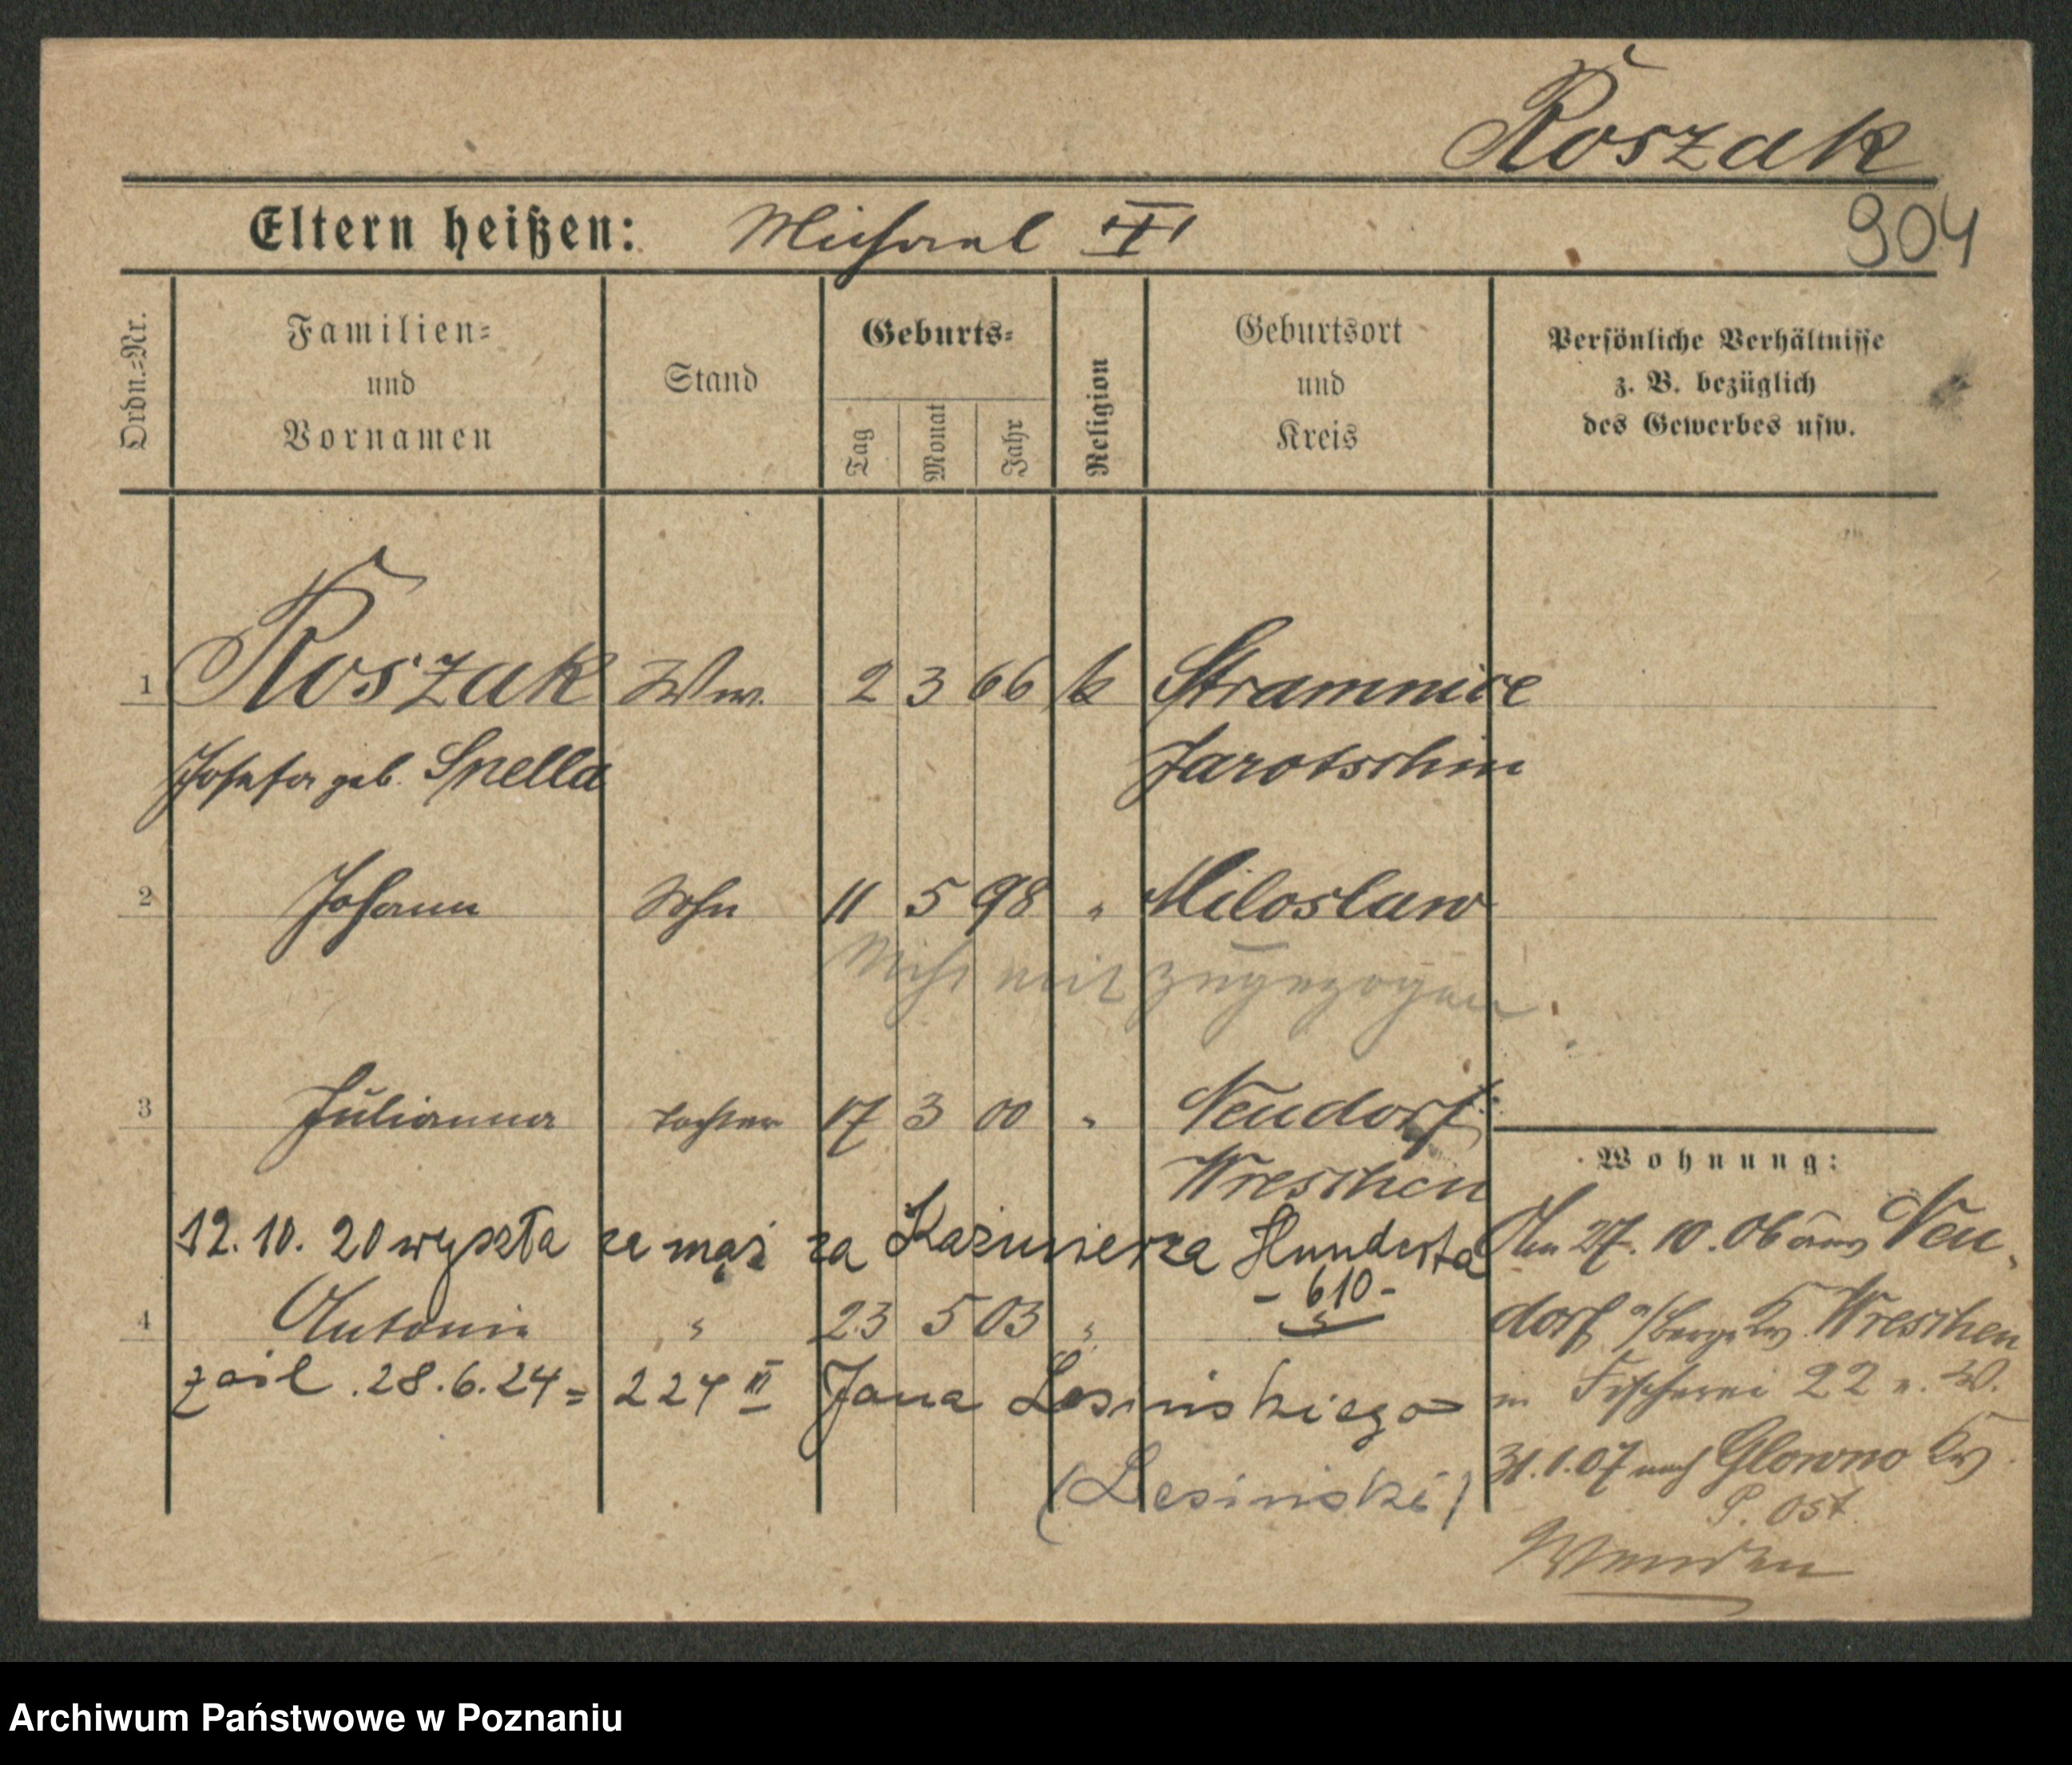 Roszak
904
Eltern heißen: Michael III
Ordn.-Nr.
Familien-
und
Vornamen
Stand
Geburts-
Tag
Monat
Jahr
Religion
Geburtsort
und
Kreis
Persönliche Verhältnisse
z. B. bezüglich
des Gewerbes usw.
1 Roszak Ww. 2 3 66 k Stramnice
Josefa geb. Snella Jarotschin
2 Johann Sohn 11 5 98 " Miloslaw
Nicht mit zugezogen
3 Julianna Tochter 17 3 00 " Neudorf
Wreschen
12.10.20 wyszła za mąż za Kazimierza Hunderta
- 610 -
4 Antonie " 23 5 03 "
zaśl. 28.6.24 = 224 II Jana Lesińskiego
(Lesiński)
Wohnung:
Am 27.10.06 aus Neu-
dorf a/Berge Kr. Wreschen
in Fischerei 22 n. W.
31.1.07 nach Glowno Kr.
P. Ost.